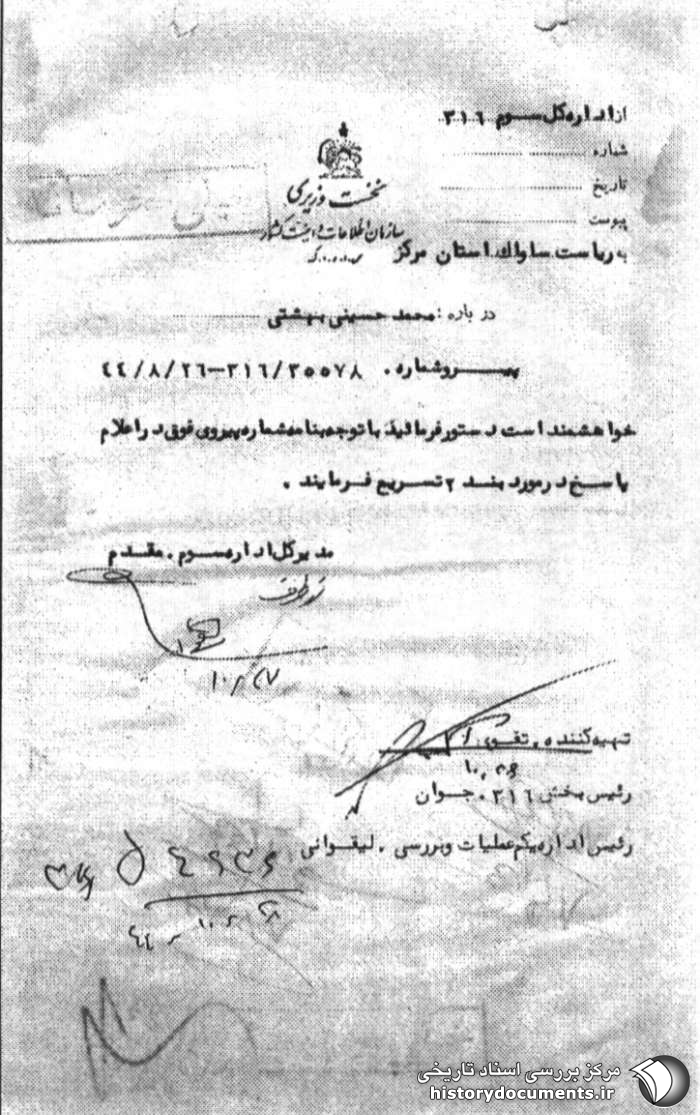 از اداره کل سوم ۳۱۶
شماره
تاریخ
پیوست
نخست وزیری
سازمان اطلاعات و امنیت کشور
س.ا.و.ا.ک
به ریاست ساواک استان مرکز
در باره : محمد حسینی بهشتی
پیرو شماره . ۳۱۶/۳۵۵۷۸-۴۴/۸/۲۶
خواهشمند است دستور فرمائید با توجه بنامه شماره پیروی فوق در اعلام
پاسخ در مورد بند ۲ تسریع فرمایند .
مدیر کل اداره سوم . مقدم
تهیه کننده . تقوی
رئیس بخش ۳۱۶ . جوان
رئیس اداره یکم عملیات و بررسی . لیقوانی
مرکز بررسی اسناد تاریخی
historydocuments.ir